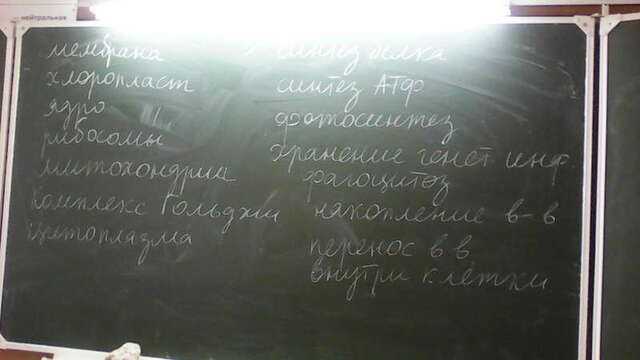 нейтральная
мембрана
хлоропласт
ядро
рибосомы
митохондрия
Комплекс Гольджи
цитоплазма
синтез белка
синтез АТФ
фотосинтез
хранение генет инф.
фагоцитоз
накопление в-в
перенос в в
внутри клетки